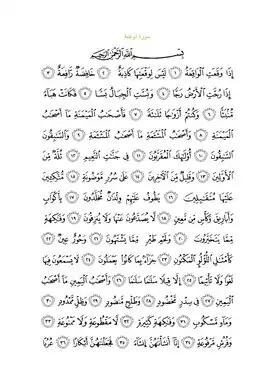 سورة الواقعة
بِسْمِ اللَّهِ الرَّحْمَٰنِ الرَّحِيمِ
إِذَا وَقَعَتِ الْوَاقِعَةُ ١ لَيْسَ لِوَقْعَتِهَا كَاذِبَةٌ ٢ خَافِضَةٌ رَافِعَةٌ ٣
إِذَا رُجَّتِ الْأَرْضُ رَجًّا ٤ وَبُسَّتِ الْجِبَالُ بَسًّا ٥ فَكَانَتْ هَبَاءً
مُنْبَثًّا ٦ وَكُنْتُمْ أَزْوَاجًا ثَلَاثَةً ٧ فَأَصْحَابُ الْمَيْمَنَةِ مَا أَصْحَابُ
الْمَيْمَنَةِ ٨ وَأَصْحَابُ الْمَشْأَمَةِ مَا أَصْحَابُ الْمَشْأَمَةِ ٩ وَالسَّابِقُونَ
السَّابِقُونَ ١٠ أُولَٰئِكَ الْمُقَرَّبُونَ ١١ فِي جَنَّاتِ النَّعِيمِ ١٢ ثُلَّةٌ مِنَ
الْأَوَّلِينَ ١٣ وَقَلِيلٌ مِنَ الْآخِرِينَ ١٤ عَلَىٰ سُرُرٍ مَوْضُونَةٍ ١٥ مُتَّكِئِينَ
عَلَيْهَا مُتَقَابِلِينَ ١٦ يَطُوفُ عَلَيْهِمْ وِلْدَانٌ مُخَلَّدُونَ ١٧ بِأَكْوَابٍ
وَأَبَارِيقَ وَكَأْسٍ مِنْ مَعِينٍ ١٨ لَا يُصَدَّعُونَ عَنْهَا وَلَا يُنْزِفُونَ ١٩ وَفَاكِهَةٍ
مِمَّا يَتَخَيَّرُونَ ٢٠ وَلَحْمِ طَيْرٍ مِمَّا يَشْتَهُونَ ٢١ وَحُورٌ عِينٌ ٢٢
كَأَمْثَالِ اللُّؤْلُؤِ الْمَكْنُونِ ٢٣ جَزَاءً بِمَا كَانُوا يَعْمَلُونَ ٢٤ لَا يَسْمَعُونَ فِيهَا
لَغْوًا وَلَا تَأْثِيمًا ٢٥ إِلَّا قِيلًا سَلَامًا سَلَامًا ٢٦ وَأَصْحَابُ الْيَمِينِ مَا أَصْحَابُ
الْيَمِينِ ٢٧ فِي سِدْرٍ مَخْضُودٍ ٢٨ وَطَلْحٍ مَنْضُودٍ ٢٩ وَظِلٍّ مَمْدُودٍ ٣٠
وَمَاءٍ مَسْكُوبٍ ٣١ وَفَاكِهَةٍ كَثِيرَةٍ ٣٢ لَا مَقْطُوعَةٍ وَلَا مَمْنُوعَةٍ ٣٣
وَفُرُشٍ مَرْفُوعَةٍ ٣٤ إِنَّا أَنْشَأْنَاهُنَّ إِنْشَاءً ٣٥ فَجَعَلْنَاهُنَّ أَبْكَارًا ٣٦ عُرُبًا